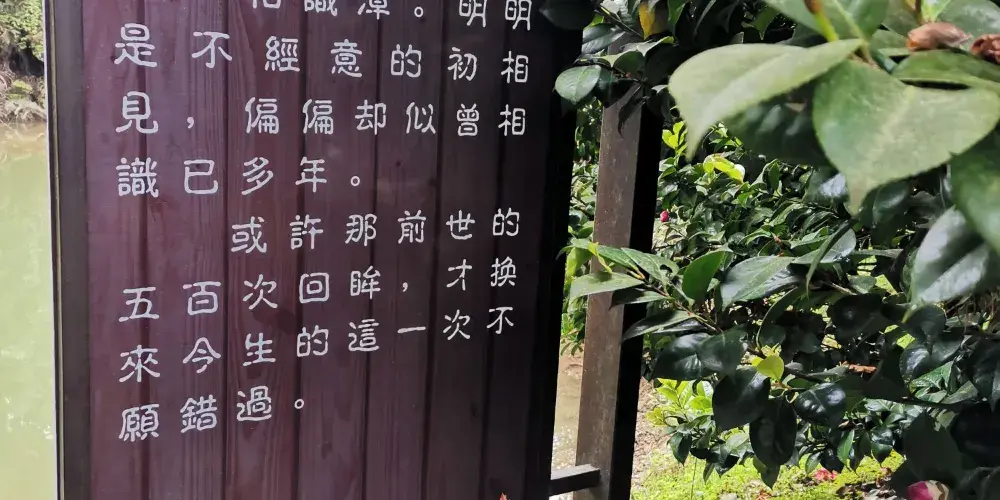 識潭。明明
是不經意的初相
見，偏偏却似曾相
識已多年。
或許那前世的
五百次回眸，才換
來今生的這一次不
願錯過。